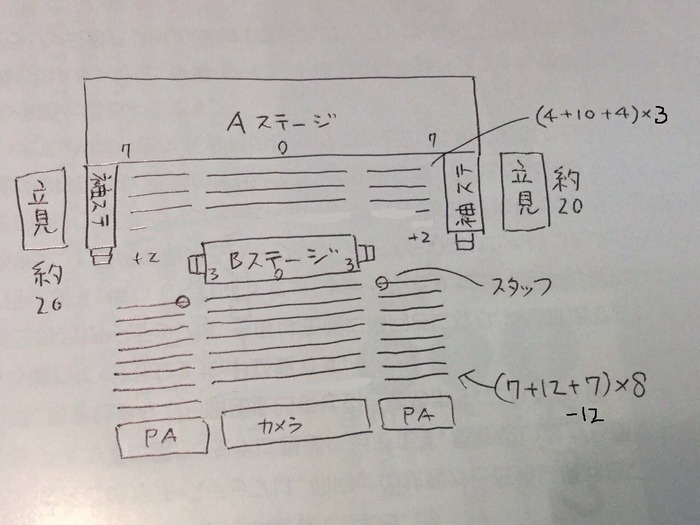 Aステージ
7 0 7
(4+10+4)×3
立見
補ステ
補ステ
立見
約
20
+2
+2
約
20
Bステージ
3 0 3
スタッフ
(7+12+7)×8
-12
PA
カメラ
PA